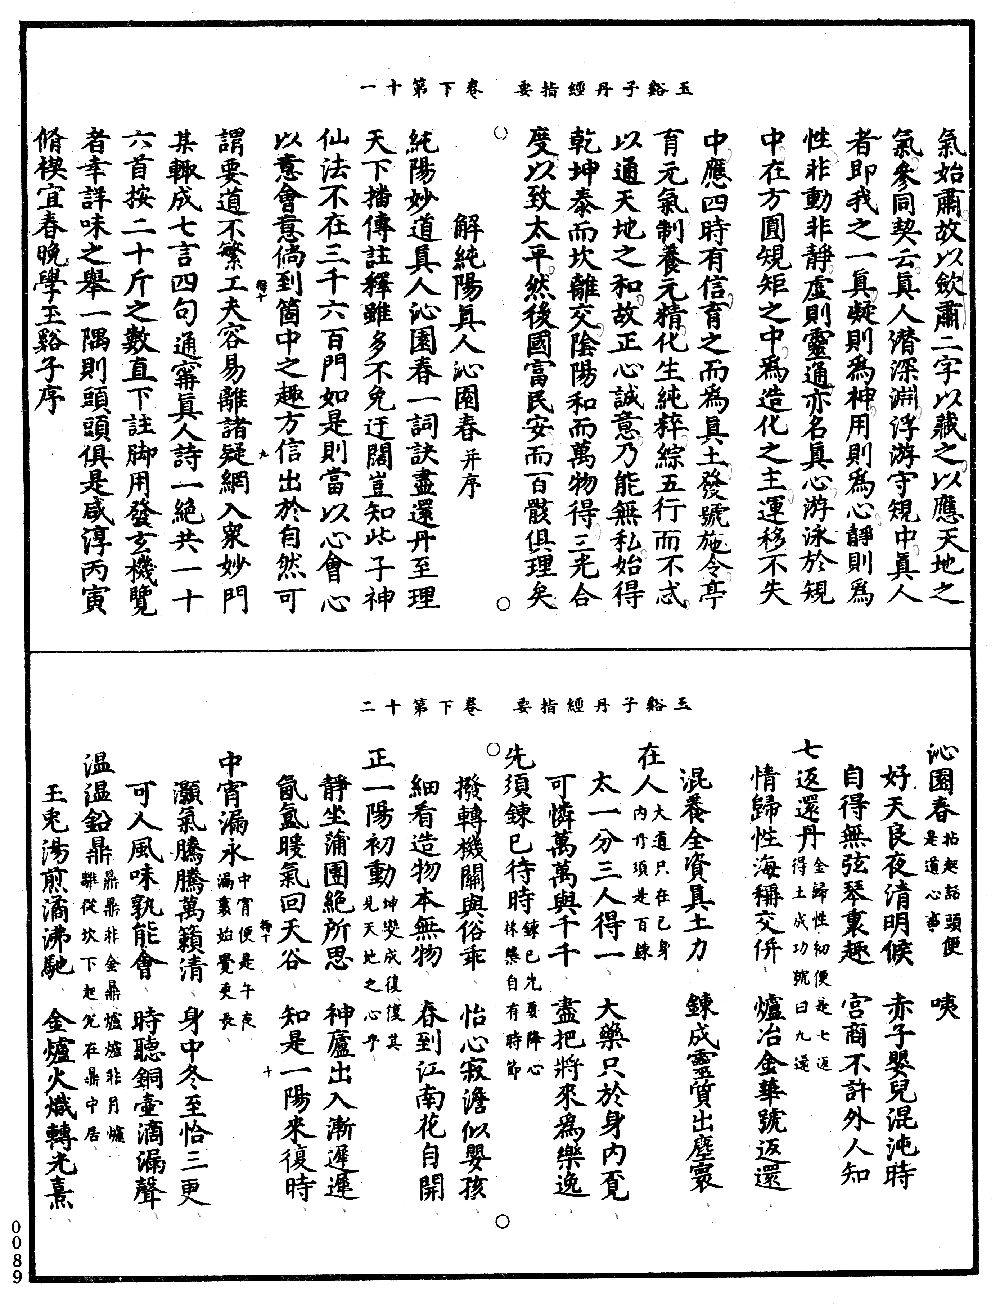 玉谿子丹經指要　卷下第十一
氣始肅故以斂肅二字以藏之以應天地之
氣參同契云真人潛深淵浮游守規中真人
者即我之一真凝則為神用則為心靜則為
性非動非靜虛則靈通亦名真心游泳於規
中在方圓規矩之中為造化之主運移不失
中應四時有信育之而為真土發號施令亭
育元氣制養元精化生純粹綜五行而不忒
以通天地之和故正心誠意乃能無私始得
乾坤泰而坎離交陰陽和而萬物得三光合
度以致太平然後國富民安而百骸俱理矣
解純陽真人沁園春并序
純陽妙道真人沁園春一詞訣盡還丹至理
天下播傳註釋雖多不免迂闊豈知此子神
仙法不在三千六百門如是則當以心會心
以意會意倘到箇中之趣方信出於自然可
謂要道不繁工夫容易離諸疑網入眾妙門
某輒成七言四句通寧真人詩一絕共一十
六首按二十斤之數直下註脚用發玄機覽
者幸詳味之舉一隅則頭頭俱是咸淳丙寅
脩禊宜春晚學玉谿子序
玉谿子丹經指要　卷下第十二
沁園春 拈起話頭便是道心事　咦
好天良夜清明候　赤子嬰兒混沌時
自得無弦琴裏趣　宮商不許外人知
七返還丹 金歸性初便是七返得土成功號曰九還
情歸性海稱交併　爐冶金華號返還
混養全資真土力　鍊成靈質出塵寰
在人 大道只在己身內丹須是百鍊
太一分三人得一　大藥只於身內覓
可憐萬萬與千千　盡把將來為樂逸
先須鍊已待時 鍊已先要降心休愁自有時節
撥轉機關與俗乖　怡心寂澹似嬰孩
細看造物本無物　春到江南花自開
正一陽初動 坤變成復復其見天地之心乎
靜坐蒲團絕所思　神廬出入漸遲遲
氤氳暖氣回天谷　知是一陽來復時
中宵漏永 中宵便是午夜漏裏始覺更長
灝氣騰騰萬籟清　身中冬至恰三更
可人風味孰能會　時聽銅壺滴漏聲
溫溫鉛鼎 鼎鼎非金鼎爐爐非月爐離從坎下起兌在鼎中居
玉兎湯煎潏沸馳　金爐火熾轉光熹
0089